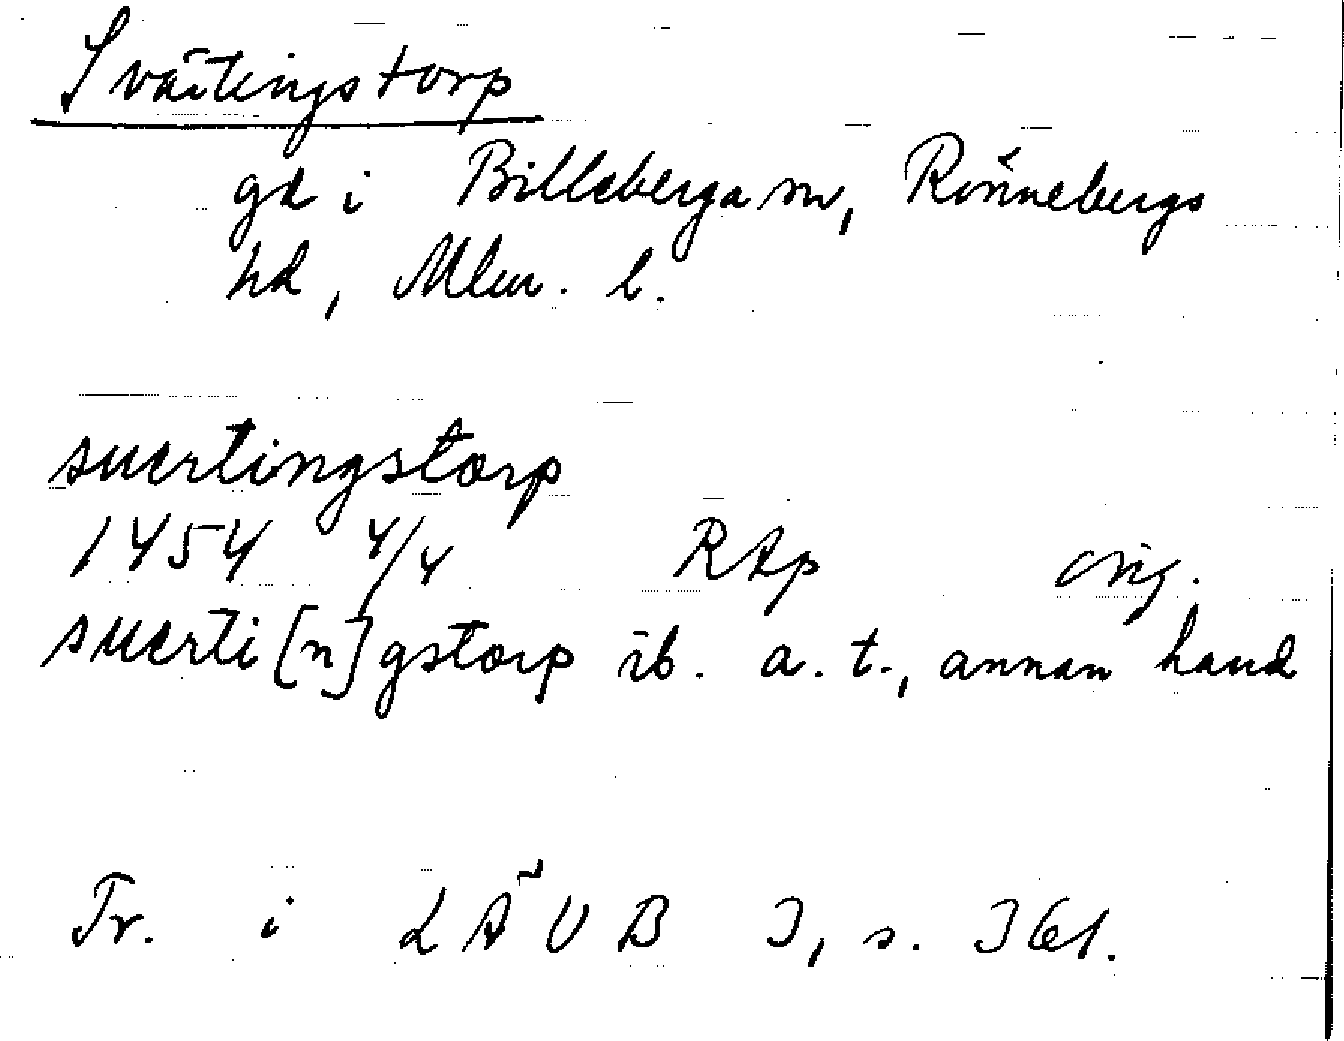 Svätingstorp
gd i Billeberga sn, Rönnebergs
hd, Mlm. l.
suertingstorp
1454 4/4 RAp orig.
suerti[n]gstorp ib. a. t., annan hand
Tr. i LÄUB 3, s. 361.